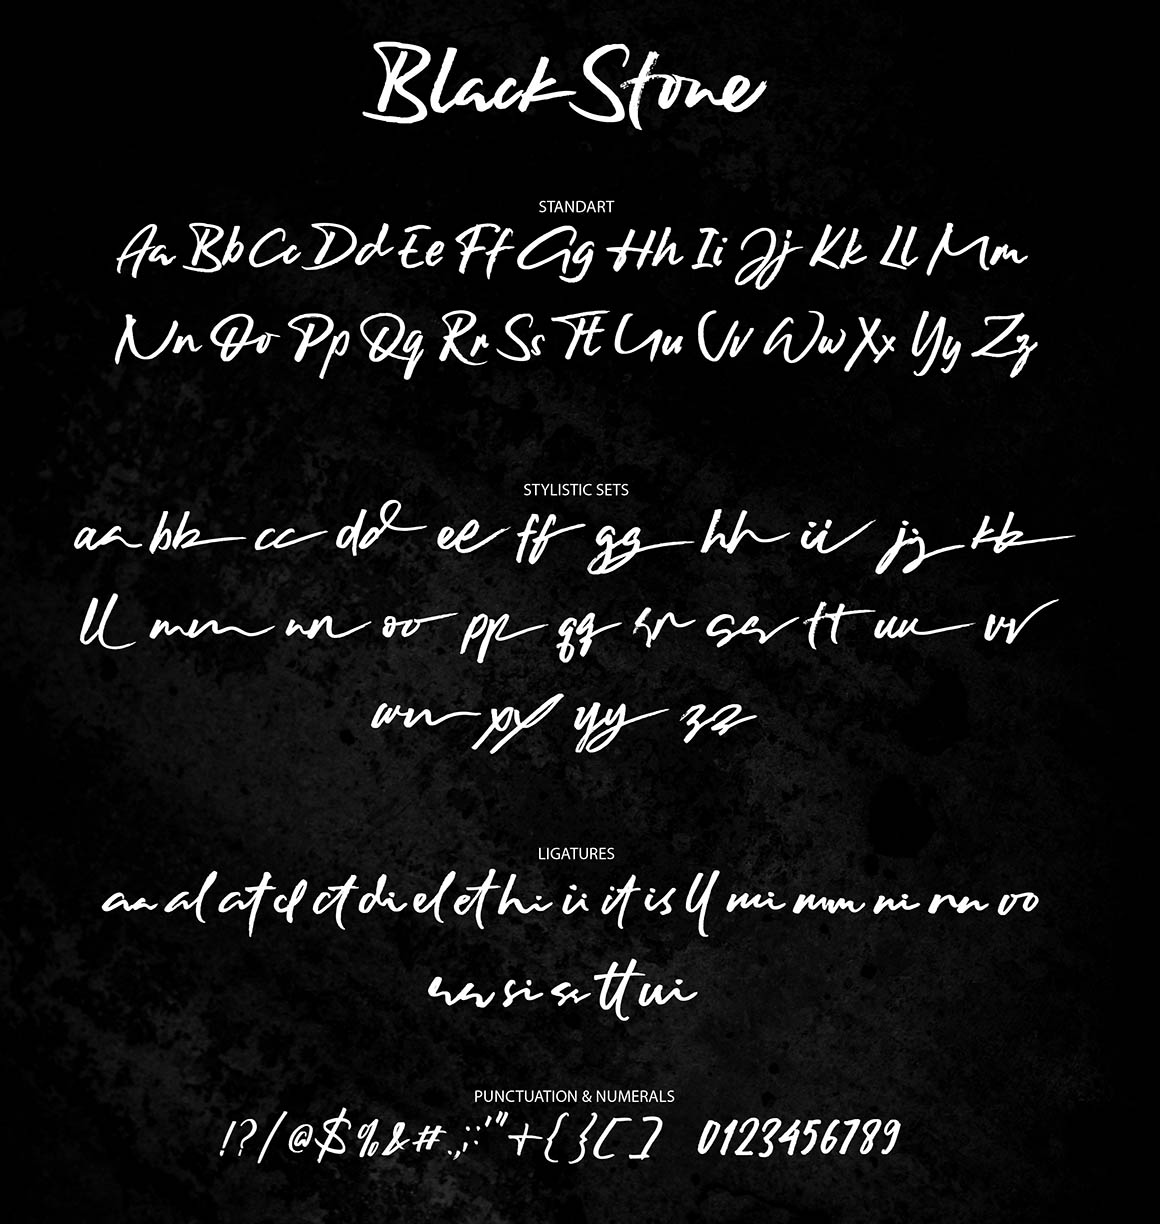 Black Stone
STANDART
Aa Bb Cc Dd Ee Ff Gg Hh Ii Jj Kk Ll Mm
Nn Oo Pp Qq Rr Ss Tt Uu Vv Ww Xx Yy Zz
STYLISTIC SETS
aa bb cc dd ee ff gg hh ii jj kk
ll mm nn oo pp qq rr ss tt uu vv
ww xx yy zz
LIGATURES
aa al at cl ct di el et hi ii it is ll mi mm ni nn oo
rr si ss tt ui
PUNCTUATION & NUMERALS
!?/@$%&#.,;:'"+{}[] 0123456789